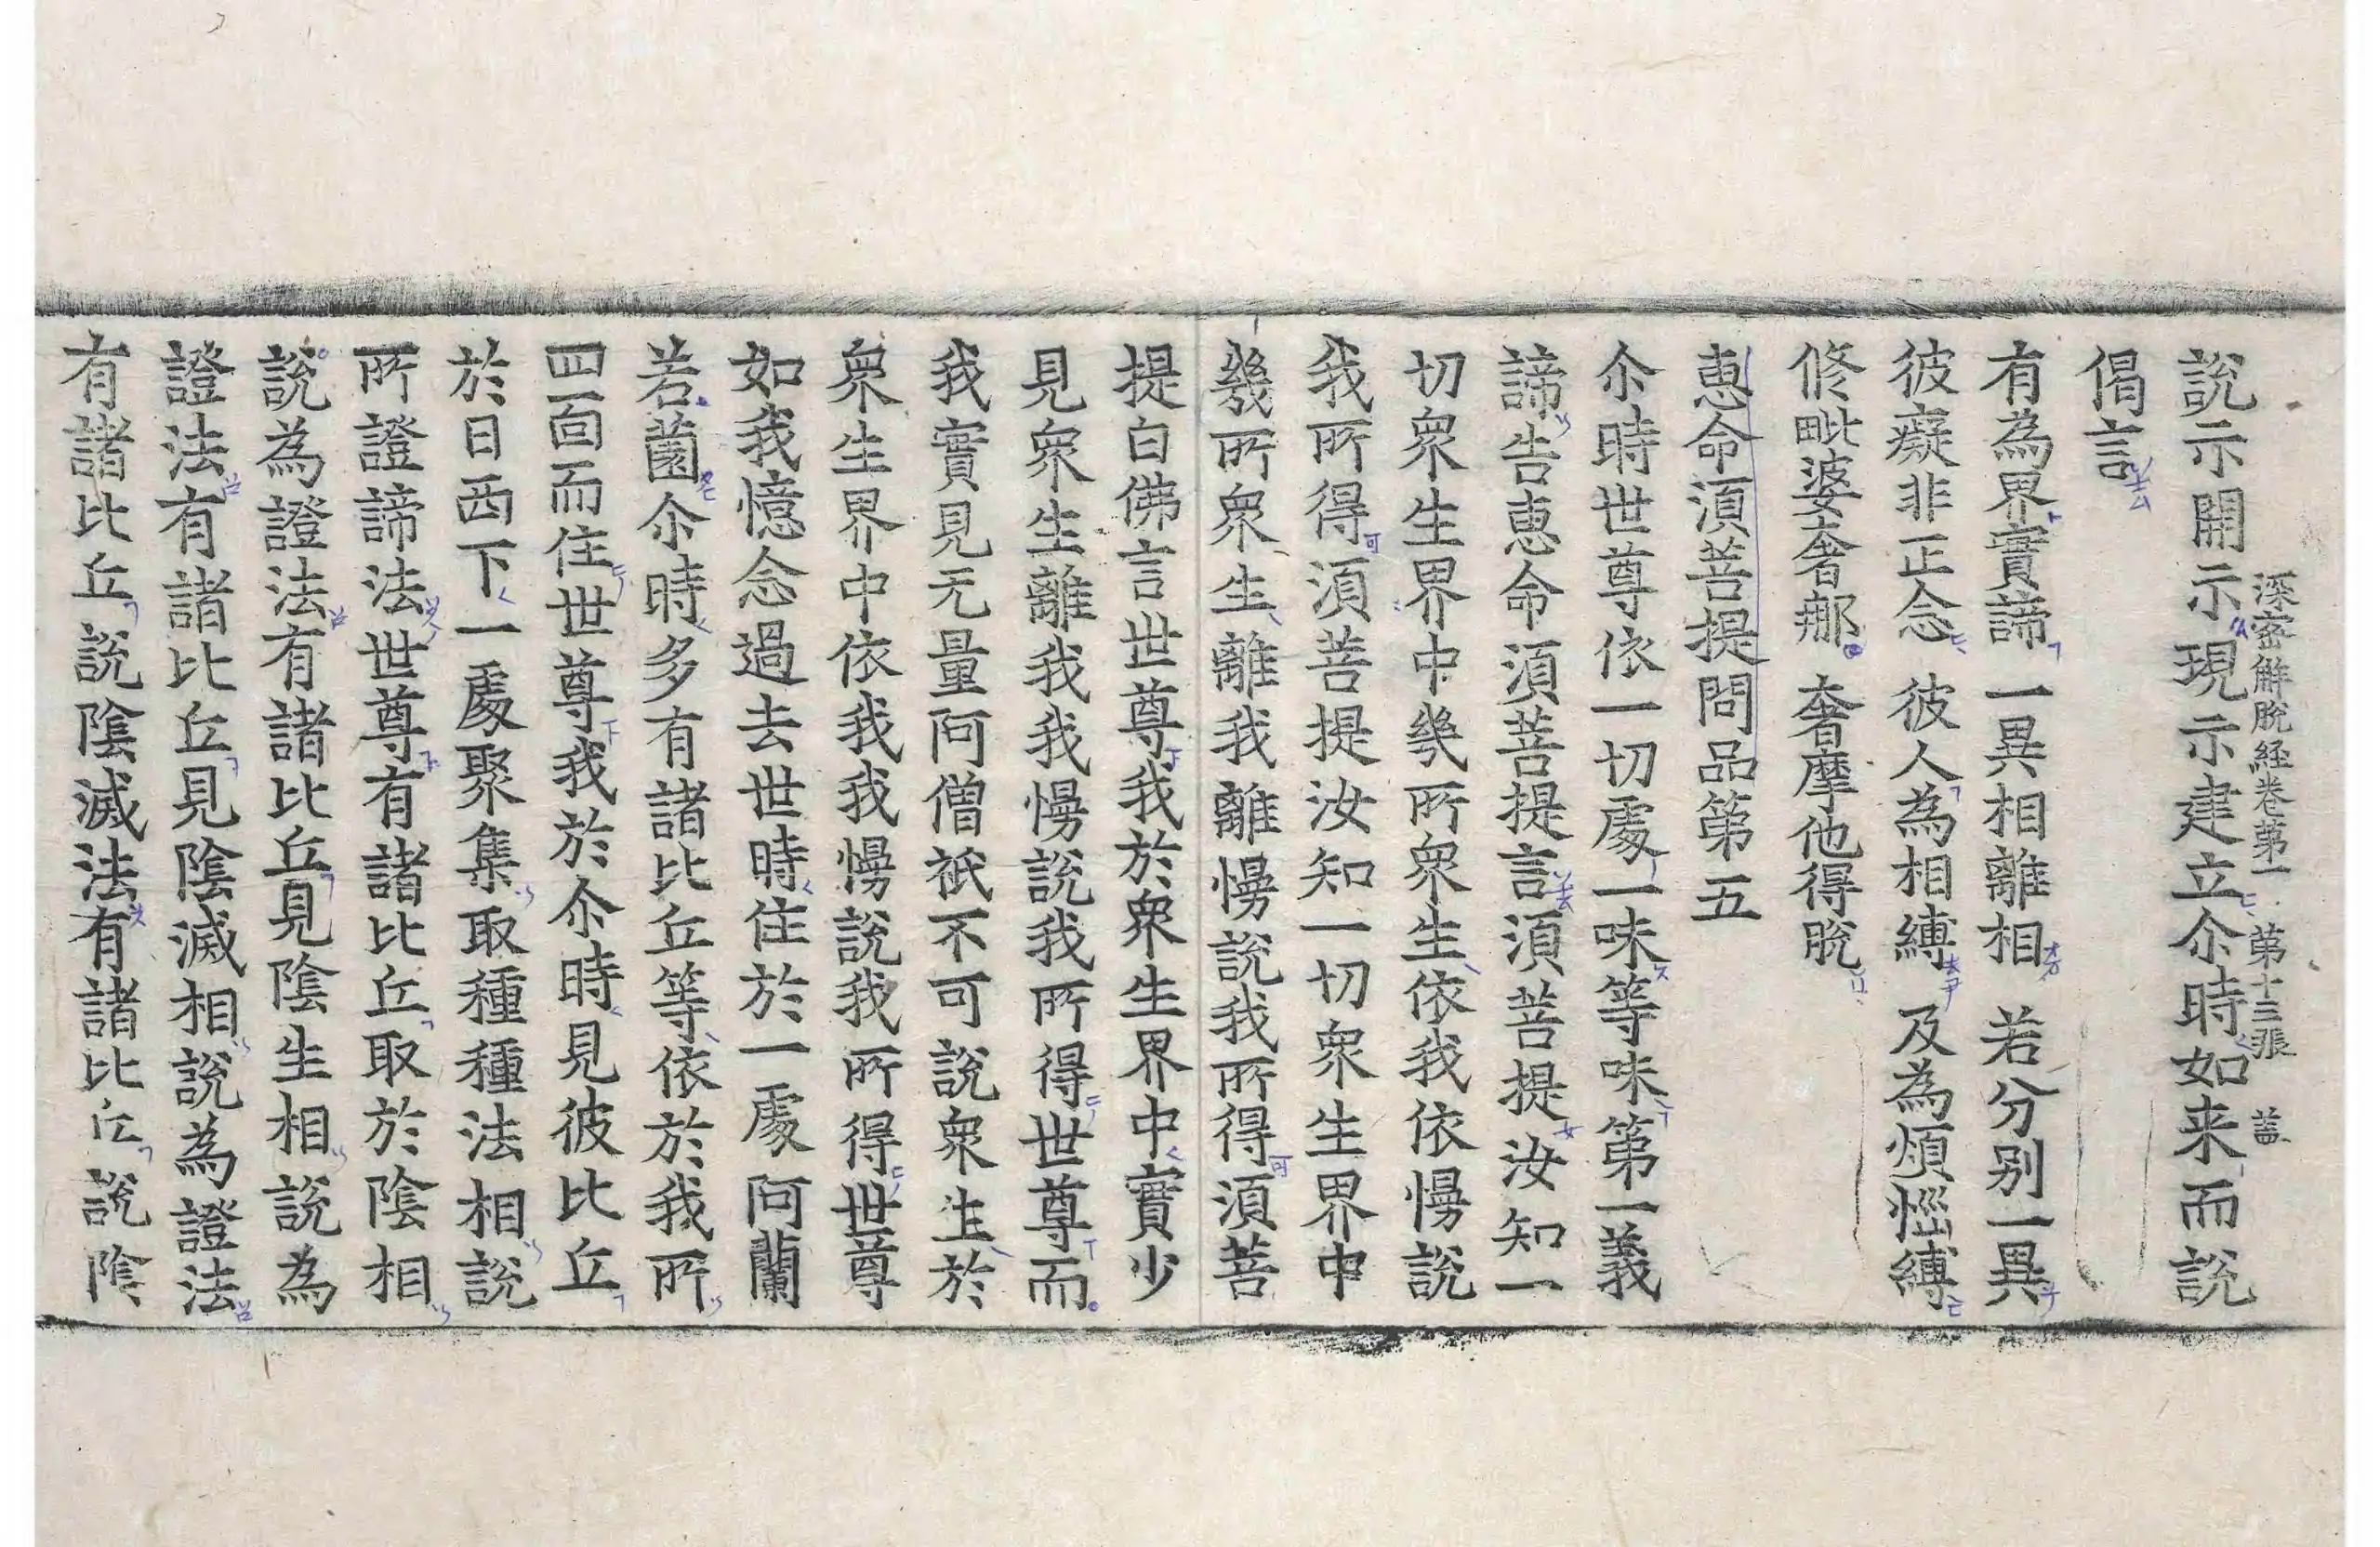 深密解脫経卷第一 第十三張 盖
說示開示現示建立尒時如来而說
偈言
有為界實諦 一異相離相 若分別一異
彼癡非正念 彼人為相縛 及為煩惱縛
修毗婆奢𨚗 奢摩他得脫
恵命湏菩提問品第五
尒時世尊依一切處一味等味第一義
諦告恵命湏菩提言湏菩提汝知一
切衆生界中幾所衆生依我依慢說
我所得湏菩提汝知一切衆生界中
幾所衆生離我離慢說我所得湏菩
提白佛言世尊我於衆生界中實少
見衆生離我我慢說我所得世尊而
我實見无量阿僧祇不可說衆生於
衆生界中依我我慢說我所得世尊
如我憶念過去世時住於一處阿蘭
若薗尒時多有諸比丘等依於我所
四面而住世尊我於尒時見彼比丘
於日西下一處聚集取種種法相說
所證諦法世尊有諸比丘取於陰相
說為證法有諸比丘見陰生相說為
證法有諸比丘見陰滅相說為證法
有諸比丘說陰滅法有諸比丘說陰